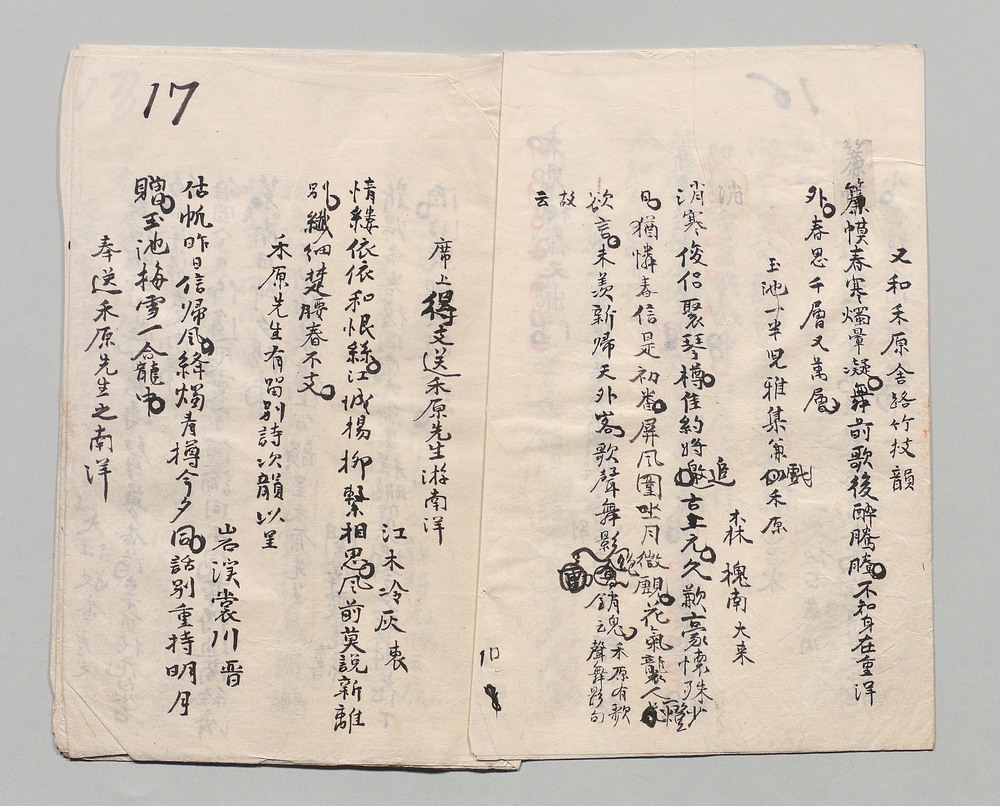 又和禾原舍路竹枝韻
簾幙春寒燭暈凝舞前歌後醉騰騰不知身在重洋
外春思千層又萬層
玉池一半兒雅集兼似禾原
森 槐南 大来
消寒俊侶聚琴樽佳約將追古上元久歉豪懷殊少
風猶憐春信是初番屏風圍坐月微覷花氣襲人
欲言未羨新歸天外窩歌聲舞影銷魂禾原有歌聲舞影句
故云
10
17
席上得支送禾原先生游南洋
江木冷灰衷
情縷依依和恨絲江城楊柳繫相思風前莫說新離
別纖細楚腰春不支
禾原先生有留別詩次韻以呈
岩溪裳川晋
估帆昨日信歸風絳燭青樽今夕同話別重持明月
贈玉池梅雪一龕中
奉送禾原先生之南洋